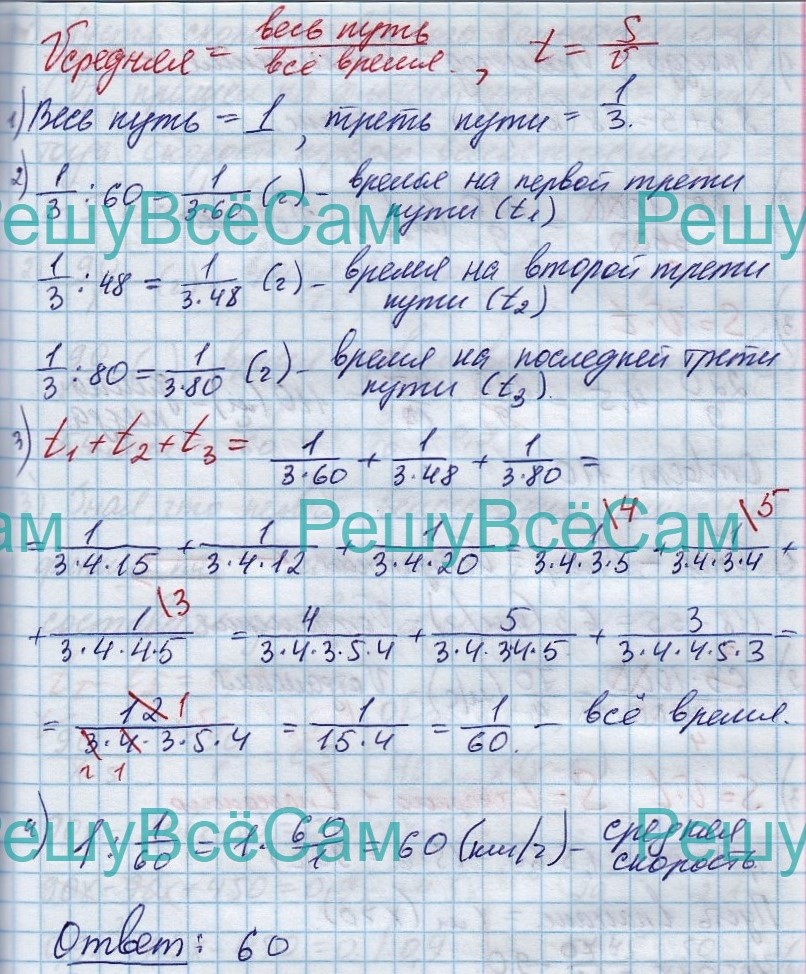 Vсредняя = весь путь / всё время, t = S/v
1) Весь путь = 1, треть пути = 1/3.
2) 1/3 : 60 = 1/(3·60) (г) – время на первой трети
пути (t₁)
РешуВсёСам РешуВсёСам
1/3 : 48 = 1/(3·48) (г) – время на второй трети
пути (t₂)
1/3 : 80 = 1/(3·80) (г) – время на последней трети
пути (t₃).
3) t₁ + t₂ + t₃ = 1/(3·60) + 1/(3·48) + 1/(3·80) =
РешуВсёСам РешуВсёСам
= 1/(3·4·15) + 1/(3·4·12) + 1/(3·4·20) = 1\4/(3·4·3·5) + 1\5/(3·4·3·4) +
+ 1\3/(3·4·4·5) = 4/(3·4·3·5·4) + 5/(3·4·34·5) + 3/(3·4·4·5·3) =
= 12 1/(3·4·3·5·4) = 1/(15·4) = 1/60. – всё время.
4) 1 : 1/60 = 1 · 60/1 = 60 (км/г) – средняя
скорость
РешуВсёСам РешуВсёСам
Ответ: 60